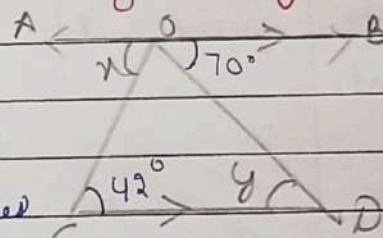 A O B
x 70°
42° y
D